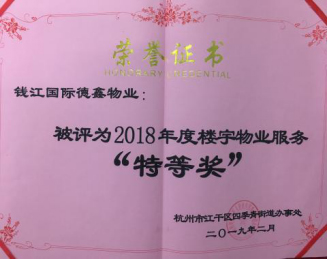 荣誉证书
HONORARY CREDENTIAL
钱江国际德鑫物业：
被评为2018年度楼宇物业服务
“特等奖”
杭州市江干区四季青街道办事处
二〇一九年二月